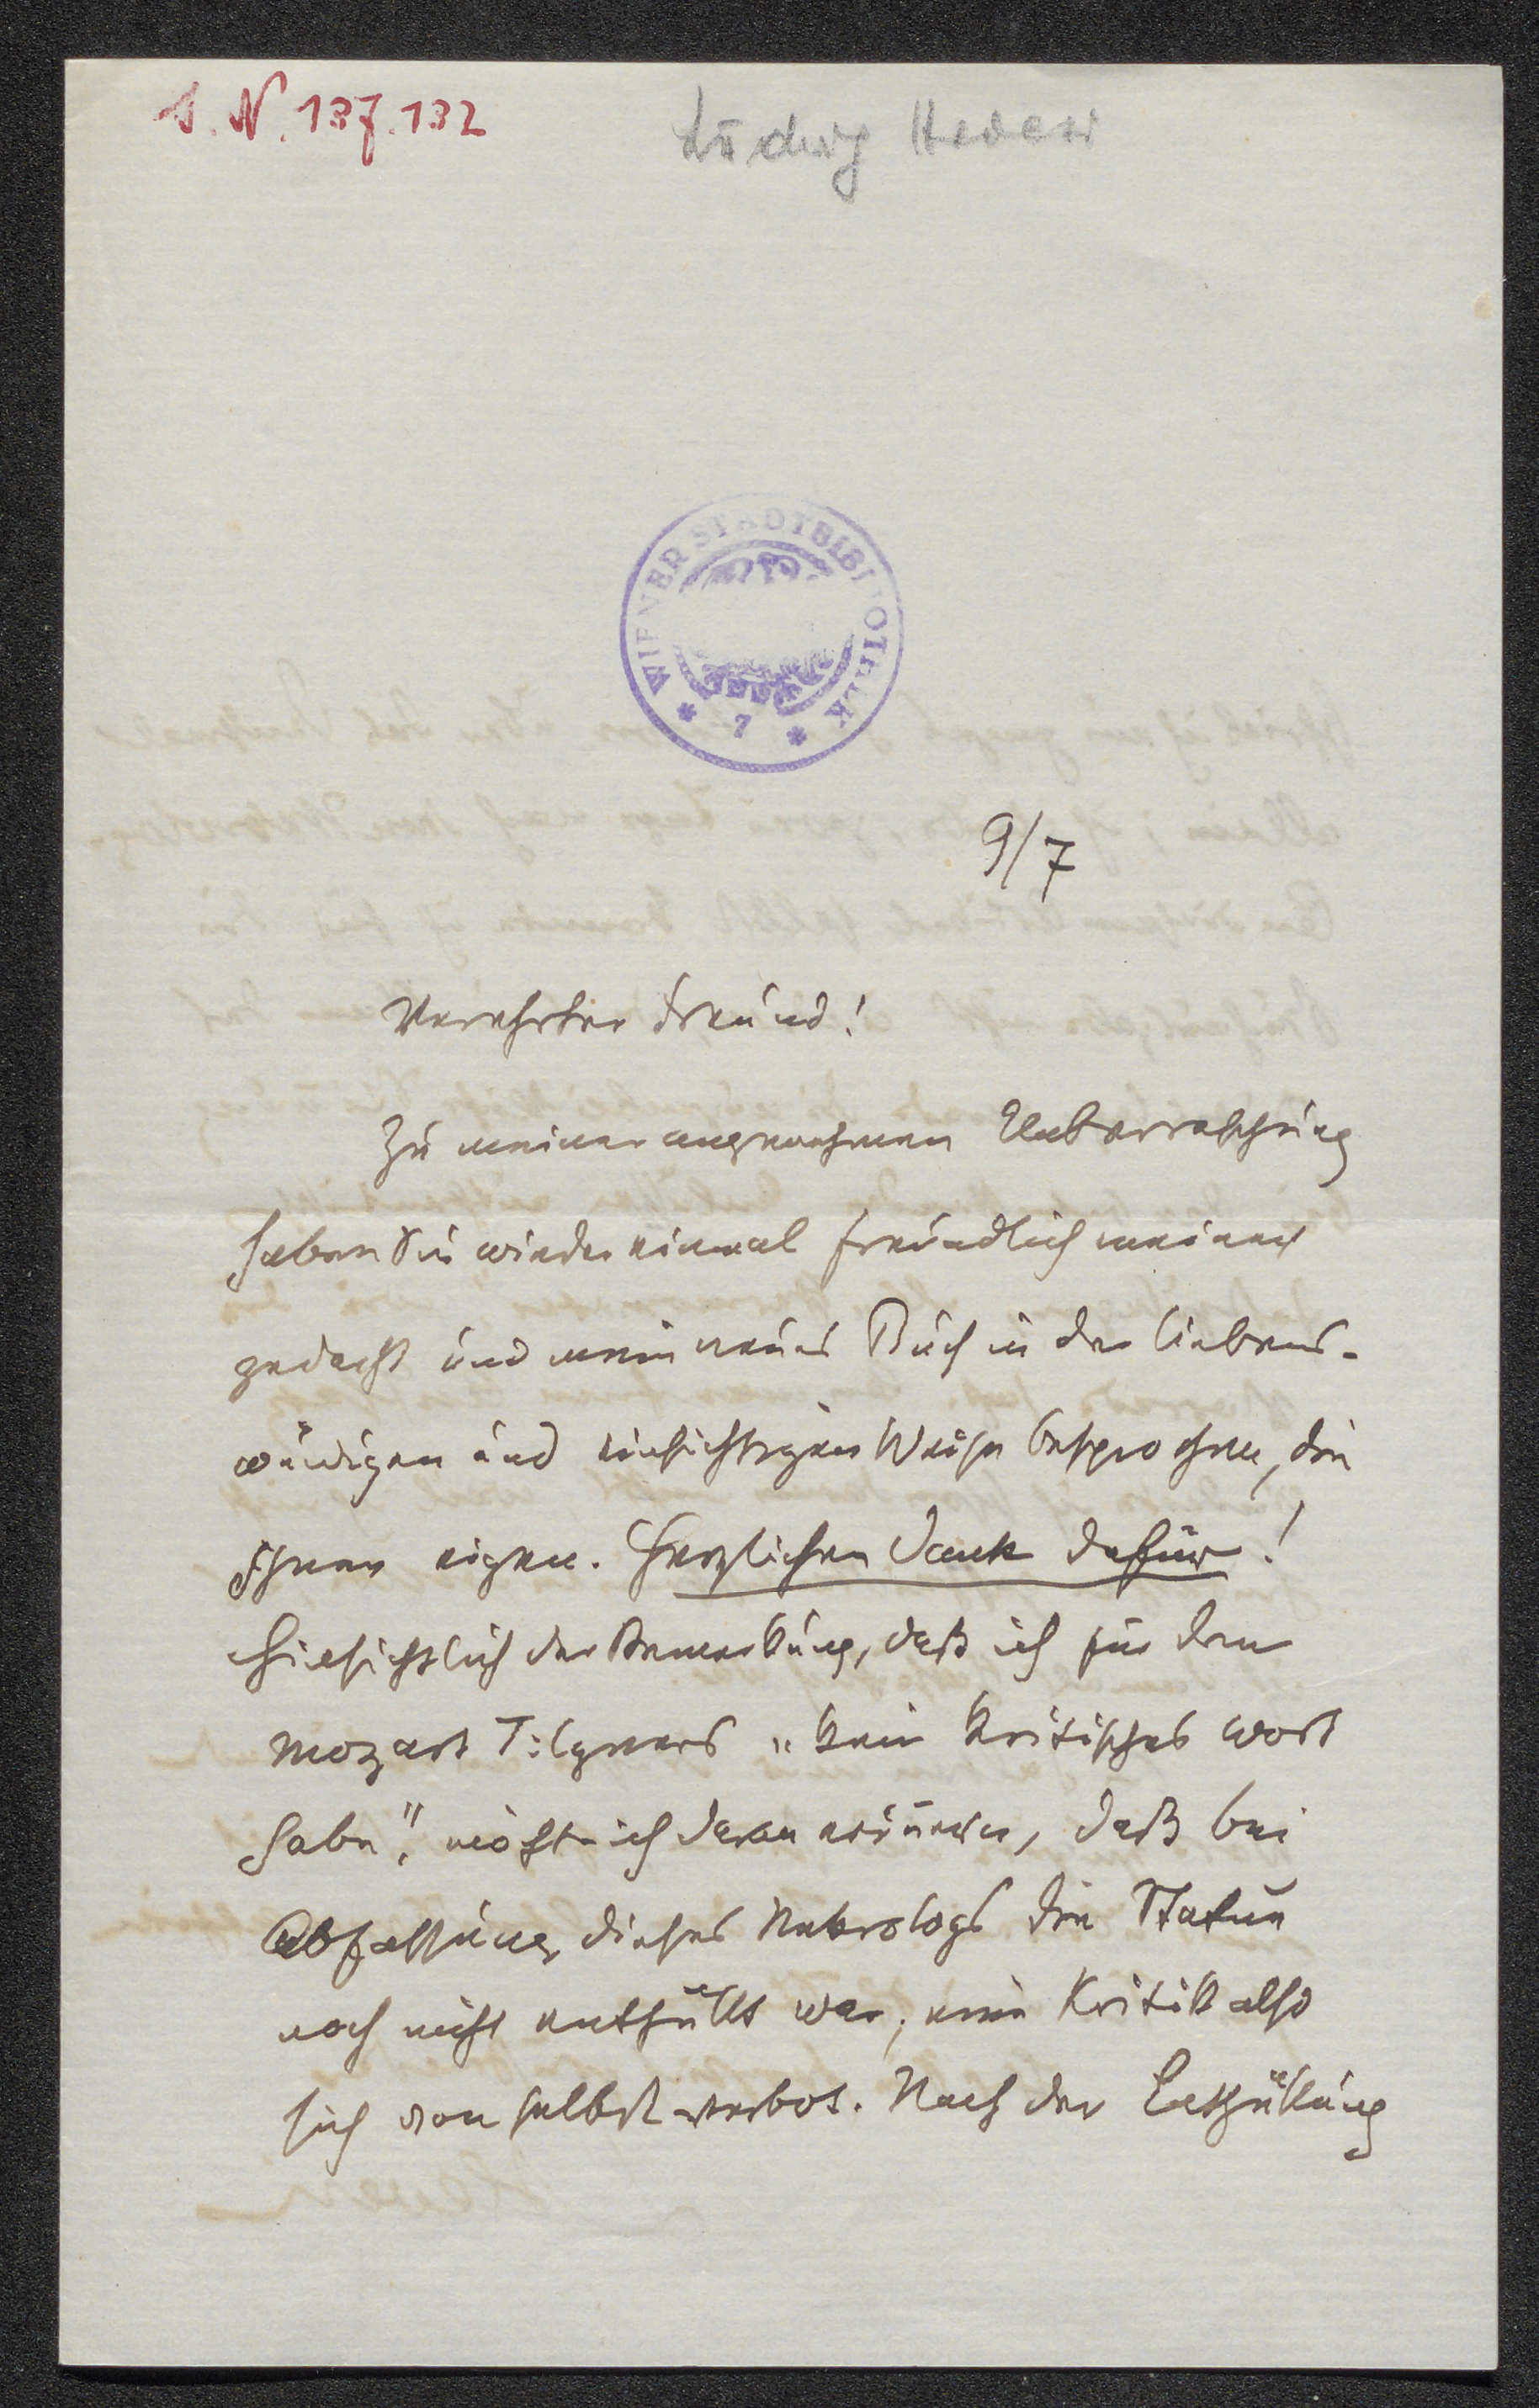 I. N. 137.132
Ludwig Hevesi
WIENER STADTBIBLIOTHEK
* 7 *
9/7
Verehrter Freund!
Zu meiner angenehmen Ueberraschung
haben Sie wieder einmal freundlich meiner
gedacht und mein neues Buch in der liebens-
würdigen und einsichtigen Weise besprochen, die
Ihnen eigen. Herzlichen Dank dafür!
Hinsichtlich der Bemerkung, daß ich für den
Mozart Tilgners „kein kritisches Wort
habe", möchte ich daran erinnern, daß bei
Abfassung dieses Nekrologs die Statue
noch nicht enthüllt war, eine Kritik also
sich von selbst verbot. Nach der Enthüllung